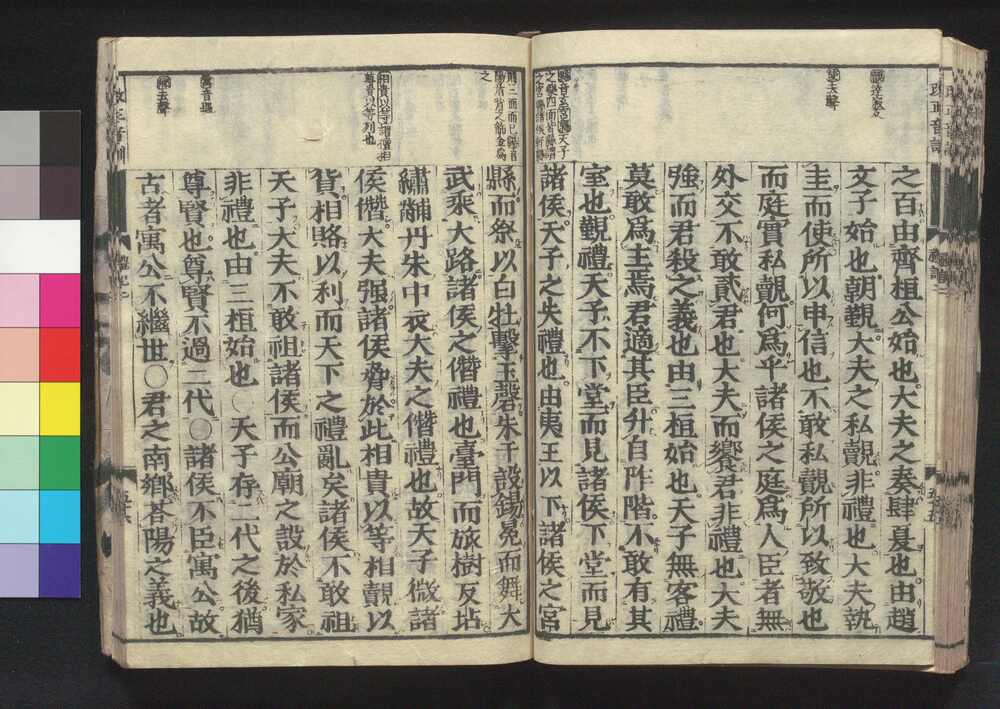 之百由齊桓公始也大夫之奏肆夏也由趙
文子始也朝覲大夫之私覿非禮也大夫執
圭而使所以申信也不敢私覿所以致敬也
而庭實私覿何爲乎諸侯之庭爲人臣者無
外交不敢貳君也大夫而饗君非禮也大夫
強而君殺之義也由三桓始也天子無客禮
莫敢爲主焉君適其臣升自阼階不敢有其
室也覲禮天子不下堂而見諸侯下堂而見
諸侯天子之失禮也由夷王以下諸侯之宮
縣而祭以白牡擊玉磬朱干設錫冕而舞大
武乘大路諸侯之僭禮也臺門而旅樹反坫
繡黼丹朱中衣大夫之僭禮也故天子微諸
侯僭大夫强諸侯脅於此相貴以等相覿以
貨相賂以利而天下之禮亂矣諸侯不敢祖
天子大夫不敢祖諸侯而公廟之設於私家
非禮也由三桓始也○天子存二代之後猶
尊賢也尊賢不過二代○諸侯不臣寓公故
古者寓公不繼世○君之南鄉荅陽之義也
去聲
相貴以等謂擅相
尊貴以等列也
音逼
去聲